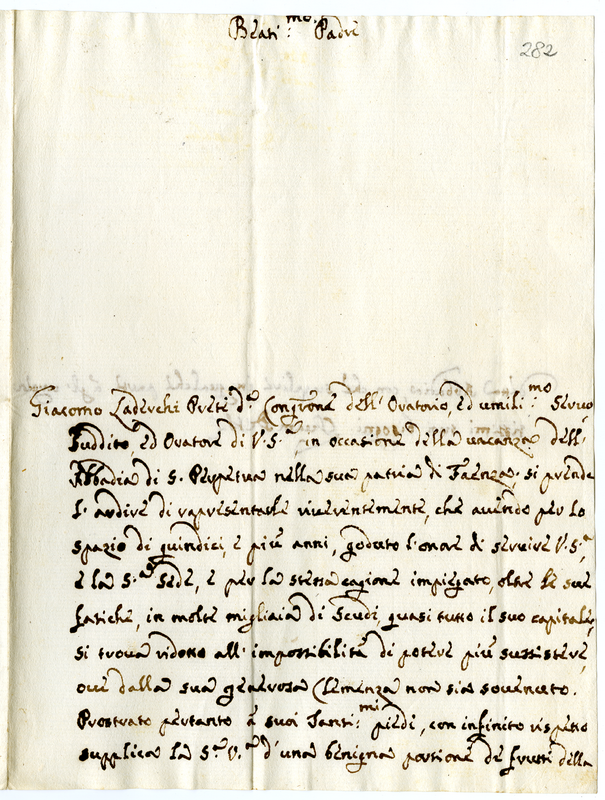 Beati:mo Padre
282
Giacomo Laderchi Prete d.a Congñone dell' Oratorio, ed umili:mo Servo,
Suddito, ed Oratore di V.S.a, in occasione della vacanza dell'
Abbadia di S. Perpetua nella sua patria di Faenza, si prende
l'ardire di rapresentarle riverentemente, che avendo per lo
spazio di quindici, e più anni, goduto l'onore di servire V.S.a,
e la S.a Sede, e per la stessa cagione impiegato, oltre le sue
fatiche, in molte migliaia di Scudi, quasi tutto il suo capitale,
si trova ridotto all' impossibilità di potere più sussistere,
ove dalla sua generosa Clemenza non sia sovenuto.
Prostrato pertanto a' suoi Santi:mi piedi, con infinito rispetto
supplica la S.a V.a d'una benigna portione de frutti della